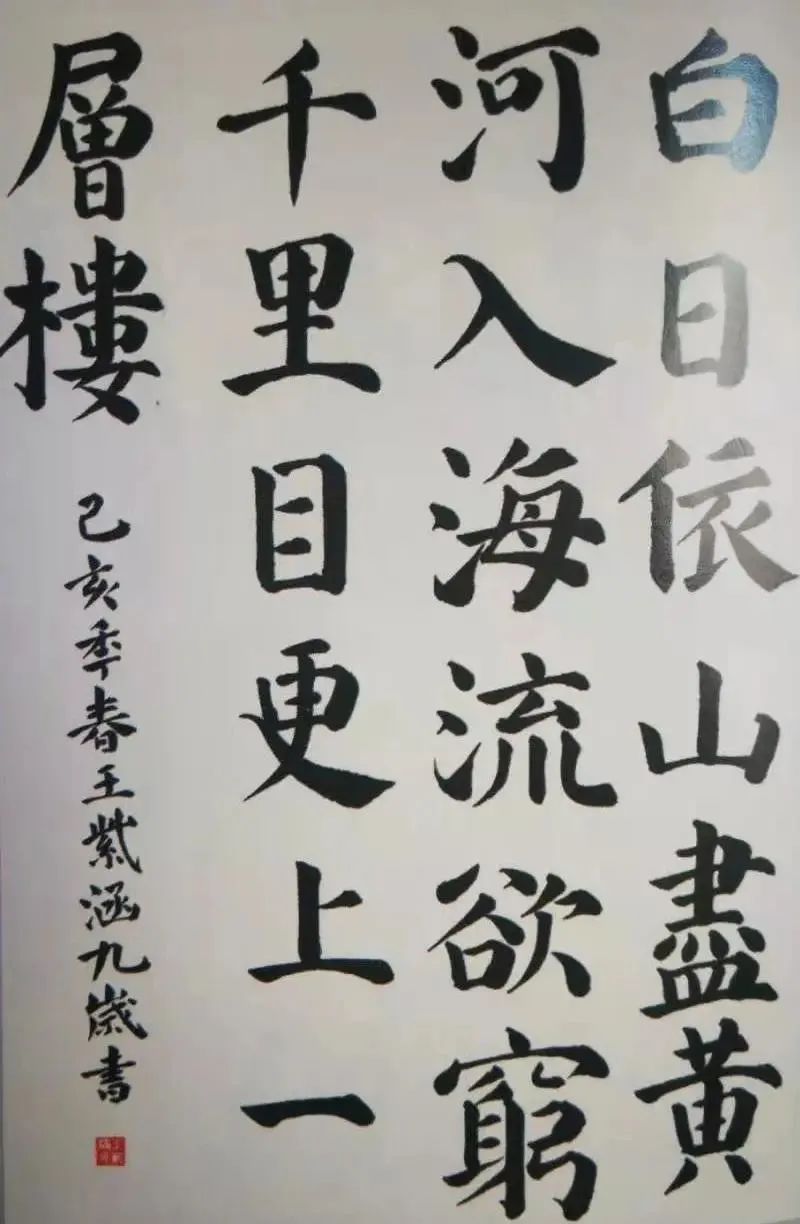 白日依山盡黄
河入海流欲窮
千里目更上一
層樓
己亥季春王紫涵九歲書